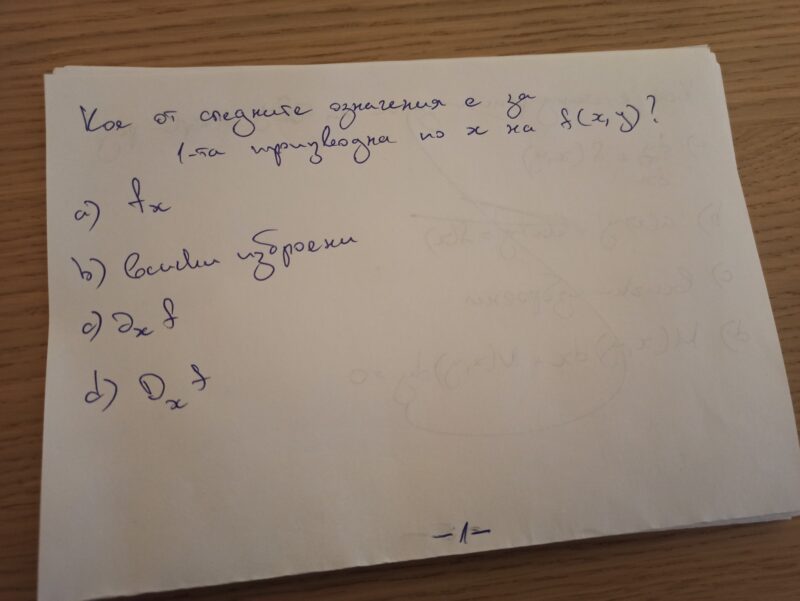 Кое от следните означения е за
1-та производна по x на f(x,y)?
a) fₓ
b) всички изброени
c) ∂ₓ f
d) Dₓ f
-1-